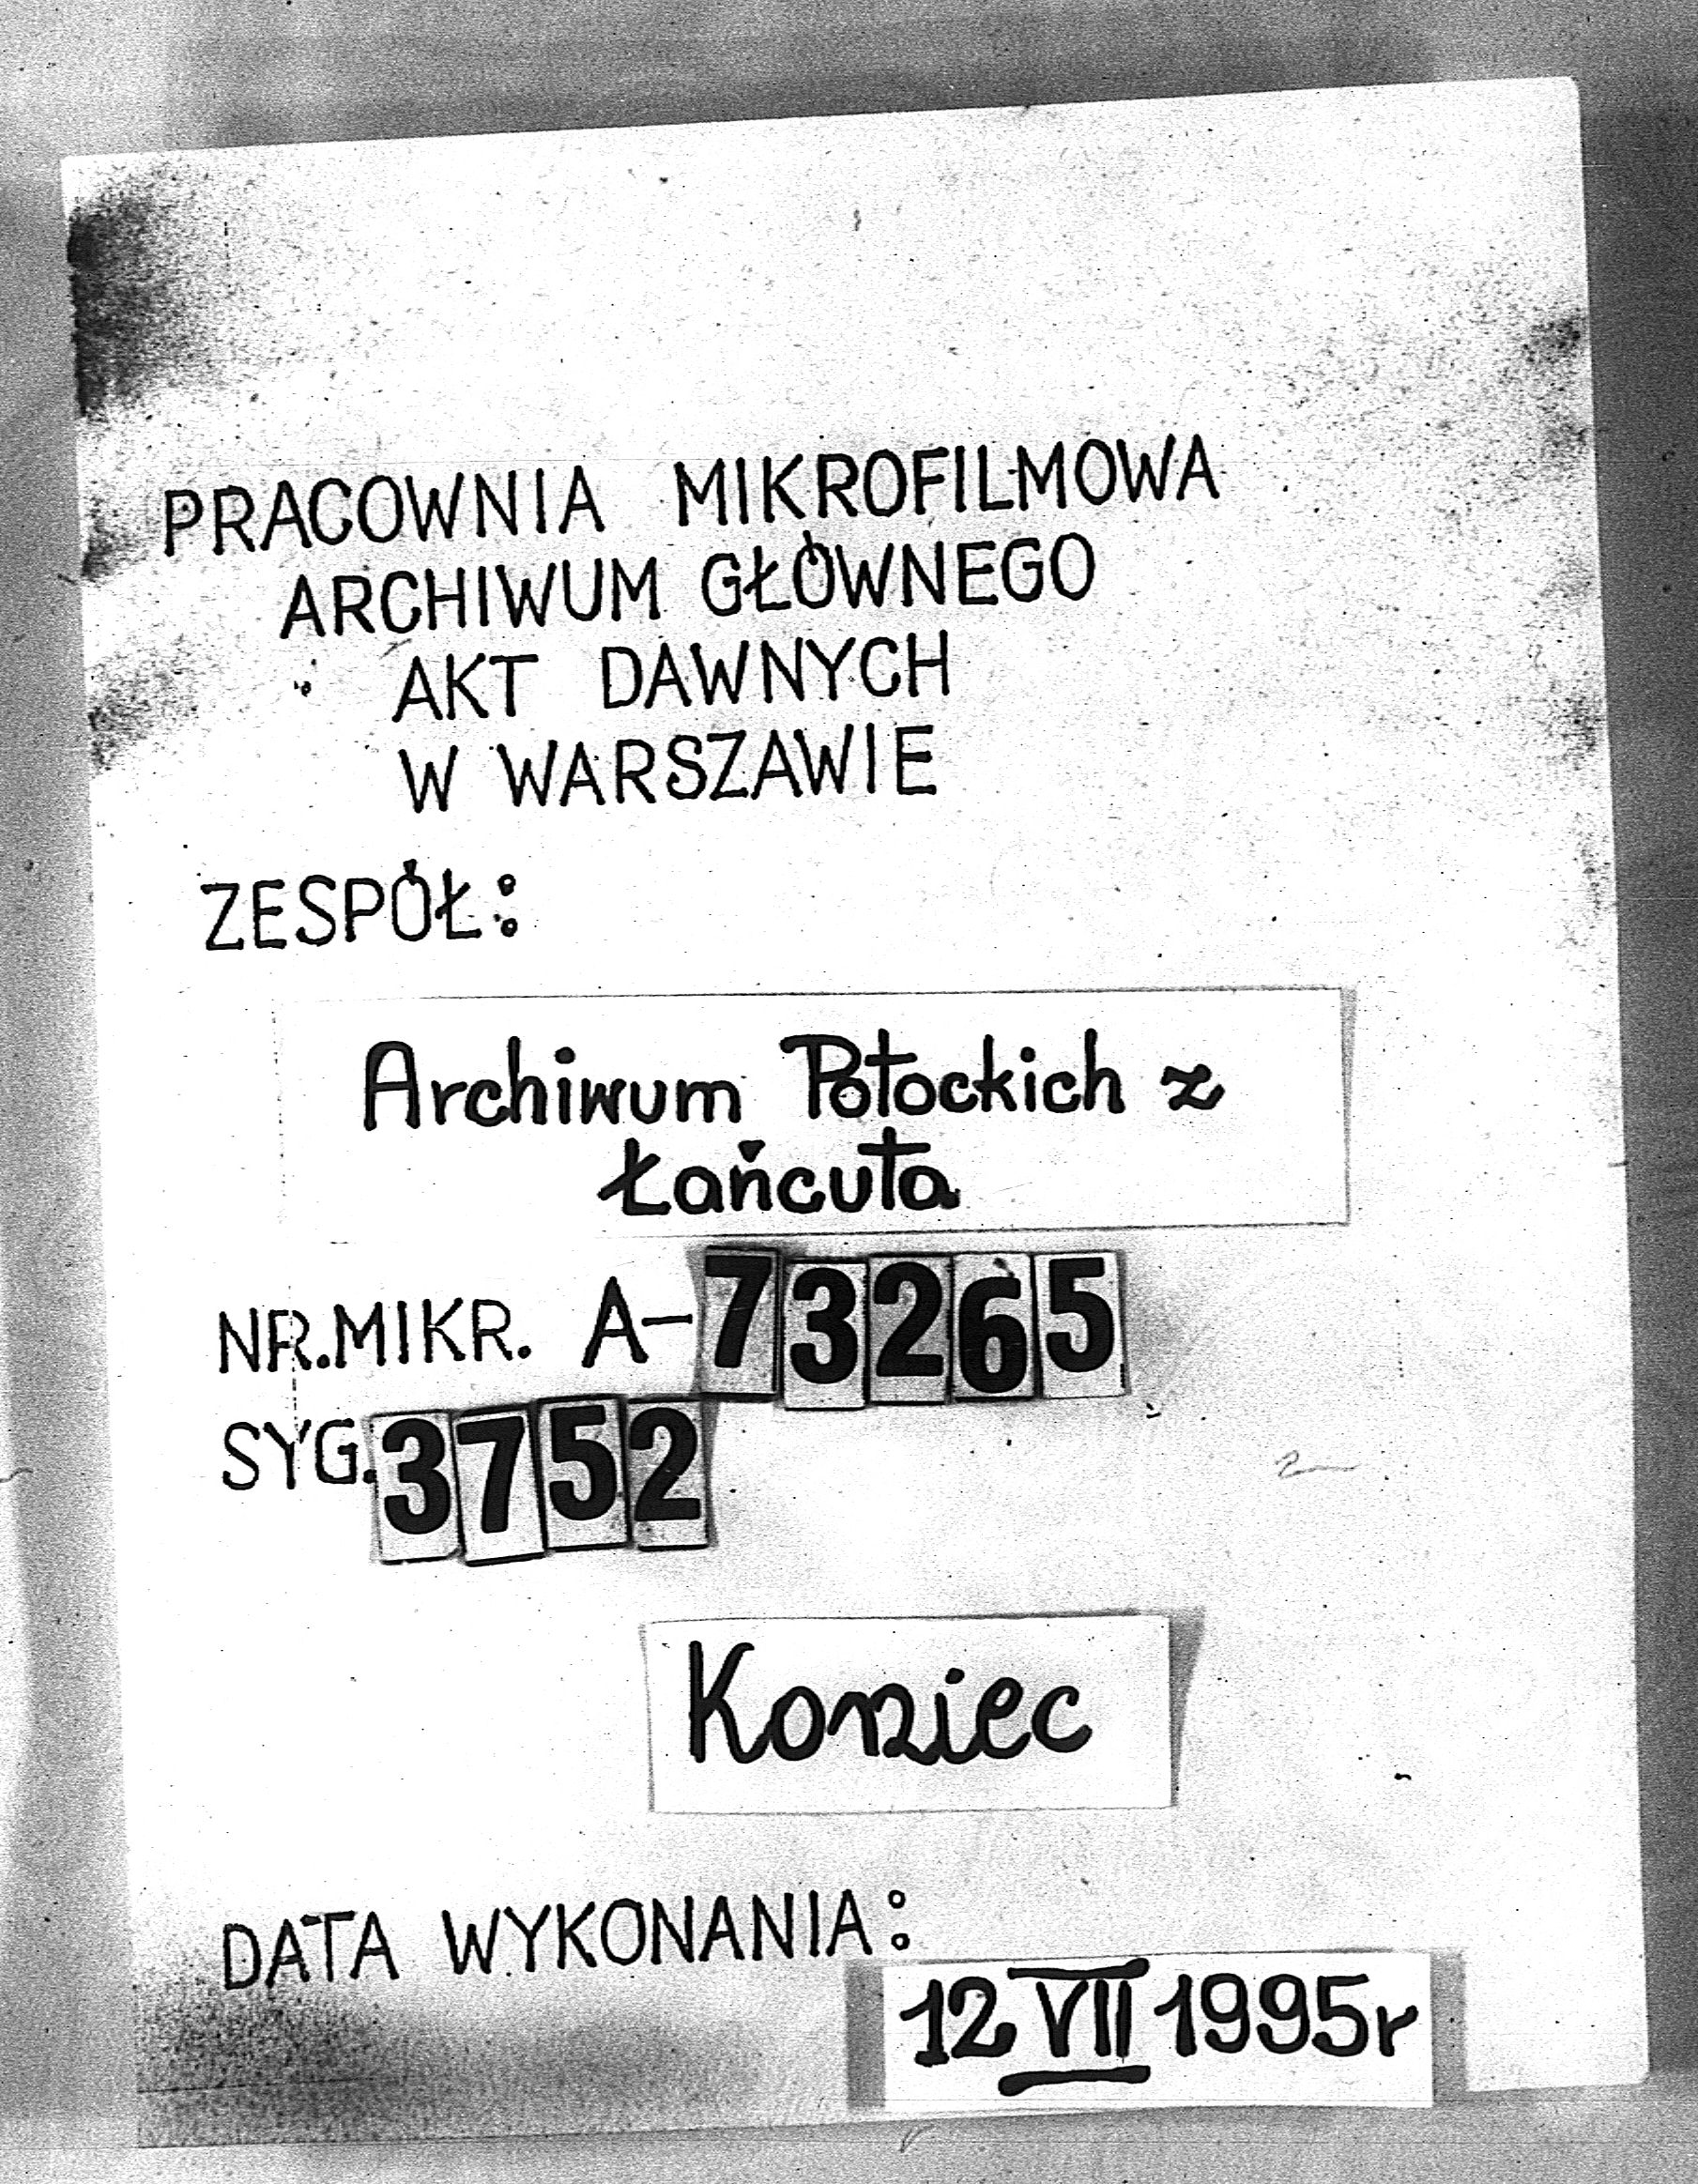 PRACOWNIA MIKROFILMOWA
ARCHIWUM GŁÓWNEGO
AKT DAWNYCH
W WARSZAWIE
ZESPÓŁ:
Archiwum Potockich z
Łańcuta
NR. MIKR. A-73265
SYG. 3752
Koniec
DATA WYKONANIA:
12 VII 1995r